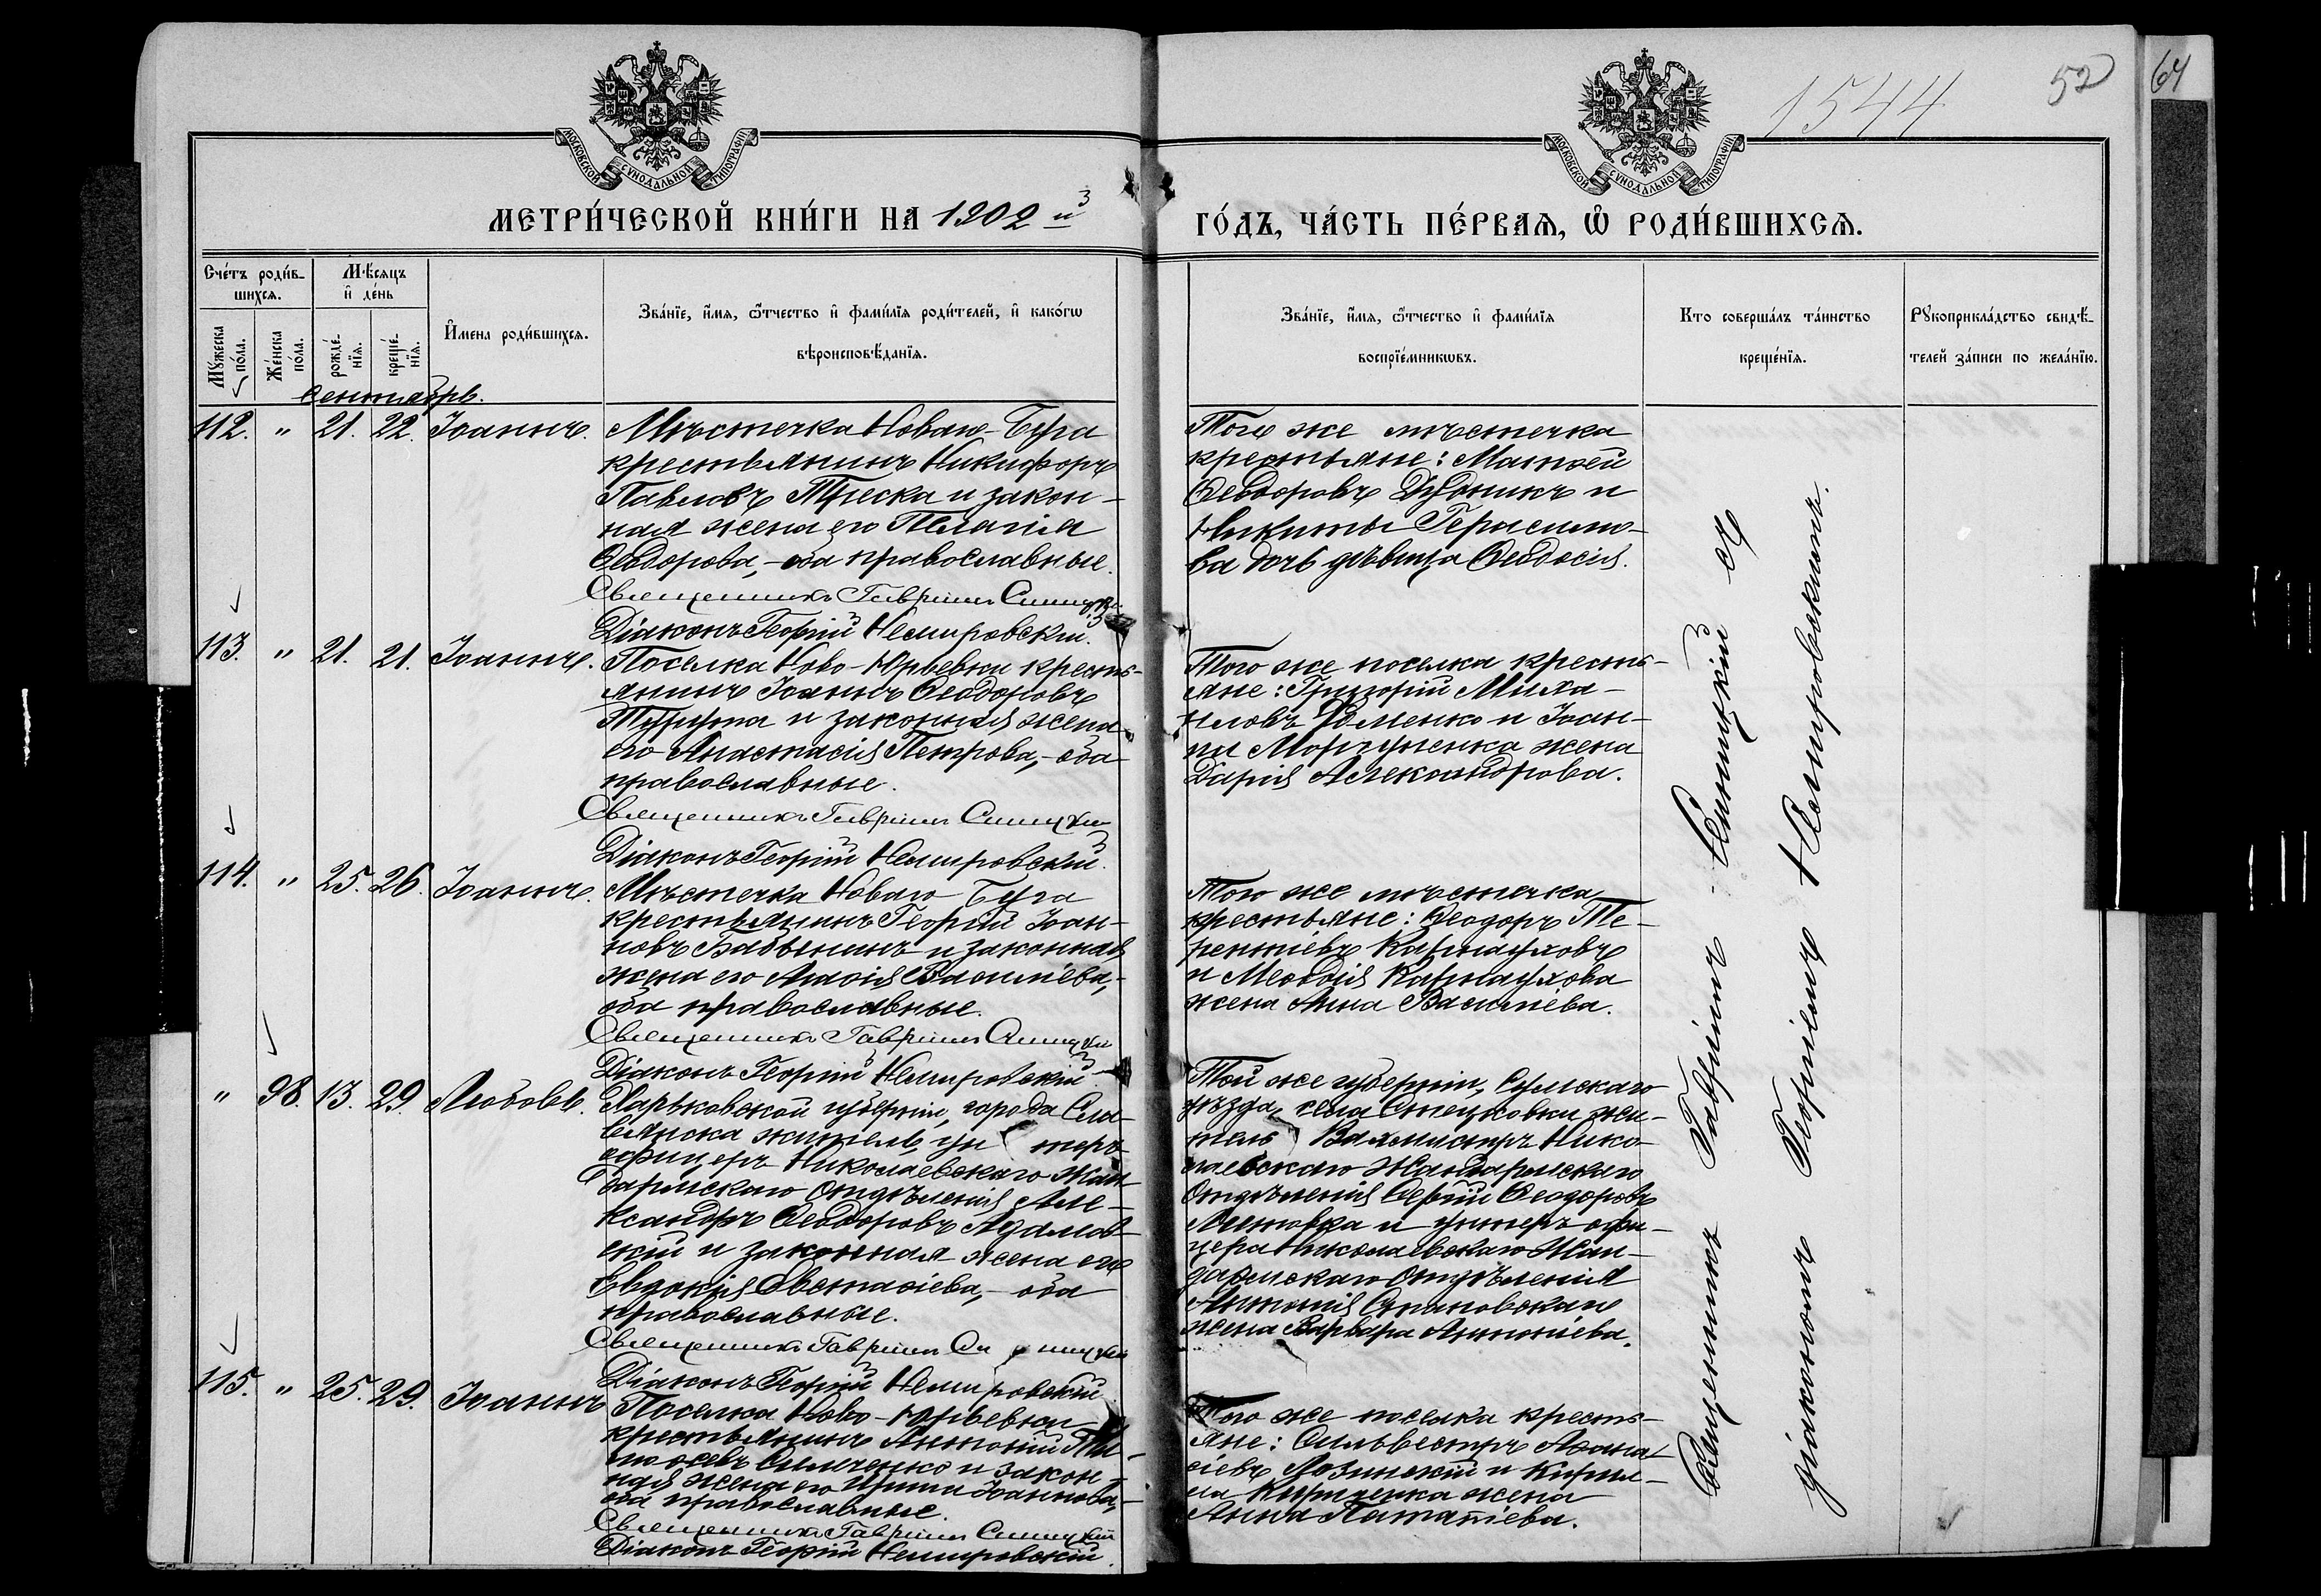 1544
52
64
МОСКОВСКОЙ СѴНОДАЛЬНОЙ ТИПОГРАФІИ
МОСКОВСКОЙ СѴНОДАЛЬНОЙ ТИПОГРАФІИ
МЕТРИ́ЧЕСКОЙ КНИ́ГИ НА 1902 й
ГО́ДЪ, ЧА́СТЬ ПЕ́РВАѦ, Ѡ РОДИ́ВШИХСѦ.
Сче́тъ роди́в-
шихсѧ.
Мѣ́сѧцъ
и де́нь
Мꙋ́жеска по́ла.
Же́нска по́ла.
рожде́-
нїѧ.
креще́-
нїѧ.
Имена роди́вшихсѧ.
Зва́нїе, и́мѧ, ѻ́тчество и фами́лїѧ роди́телей, и како́гѡ
вѣроисповѣ́данїѧ.
Зва́нїе, и́мѧ, ѻ́тчество и фами́лїѧ
воспрїе́мникѡвъ.
Кто соверша́лъ та́инство
креще́нїѧ.
Рꙋкоприкла́дство свидѣ́-
телей за́писи по жела́нїю.
Сентябрь.
112. " 21. 22. Іоаннъ.
Мѣстечка Новаго-Буга
крестьянинъ Никифоръ
Павловъ Треска и закон-
ная жена его Пелагія
Ѳеодорова,-оба православные.
Священникъ Гавріилъ Синицкій
Діаконъ Георгій Немировскій.
Того же мѣстечка
крестьяне: Матѳей
Ѳеодоровъ Дубникъ и
Никиты Герасимо-
ва дочь дѣвица Ѳеодосія.
113. " 21. 21. Іоаннъ.
Поселка Ново-Юрьевки кресть-
янинъ Іоаннъ Ѳеодоровъ
и законная жена
его Анастасія Петрова,-оба
православные.
Священникъ Гавріилъ Синицкій
Діаконъ Георгій Немировскій.
Того же поселка кресть-
яне: Григорій Миха-
иловъ Фоменко и Іоан-
на жена
Дарія Александрова.
114. " 25. 26. Іоаннъ.
Мѣстечка Новаго Буга
крестьянинъ Георгій Іоан-
новъ Бабынинъ и законная
жена его Василіева,-
оба православные.
Священникъ Гавріилъ Синицкій
Діаконъ Георгій Немировскій.
Того же мѣстечка
крестьяне: Ѳеодоръ Те-
рентіевъ Карнауховъ
и Меѳодія Карнаухова
жена Анна Василіева.
" 98. 13. 29. Любовь.
Харьковской губерніи, города Сла-
вянска житель, ун теръ
офицеръ Николаевскаго Жан-
дармскаго Отдѣленія Але-
ксандръ Ѳеодоровъ Адамов-
скій и законная жена его
Евдокія Евстаѳіева,-оба
православные.
Священникъ Гавріилъ Си ницкій
Діаконъ Георгій Немировскій
Той же губерніи, Сумскаго
уѣзда, села Стецковки жи-
тель Вахмистръ Нико-
лаевскаго Жандармскаго
Отдѣленія Сергій Ѳеодоровъ
и унтеръ офи-
цера Николаевскаго Жан-
дармскаго Отдѣленія
Антонія
жена Варвара Антоніева.
115. " 25. 29. Іоаннъ
Поселка Ново-Юрьевки
крестьянинъ Антоній Ти-
моѳеевъ и закон-
ная жена его Ирина Іоаннова,-
оба православные.
Священникъ Гавріилъ Синицкій
Діаконъ Георгій Немировскій.
Того же поселка кресть-
яне: Сильвестръ Аѳана-
сіевъ Лозинскій и Кирил-
ла Кириченка жена
Анна Потапіева.
Священникъ Гавріилъ Синицкій съ
діакономъ Георгіемъ Немировскимъ.